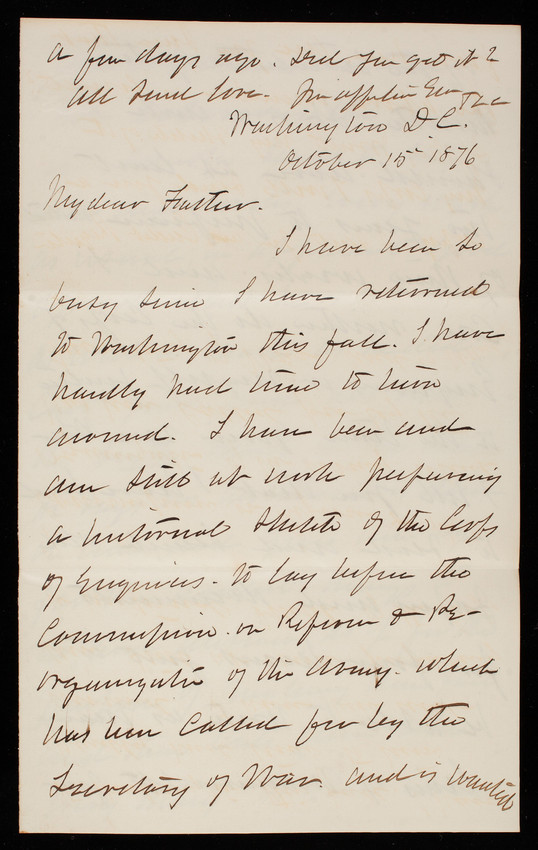 a few days ago. Did you get it?
All send love. Yr affectn Son TLC
Washington D.C.
October 15th 1876
My dear Father.
I have been so
busy since I have returned
to Washington this fall. I have
hardly had time to turn
around. I have been and
am still at work preparing
a historical sketch of the Corps
of Engineers - to lay before the
Commission on Reform & Re-
organization of the Army. which
has been called for by the
Secretary of War. and is wanted